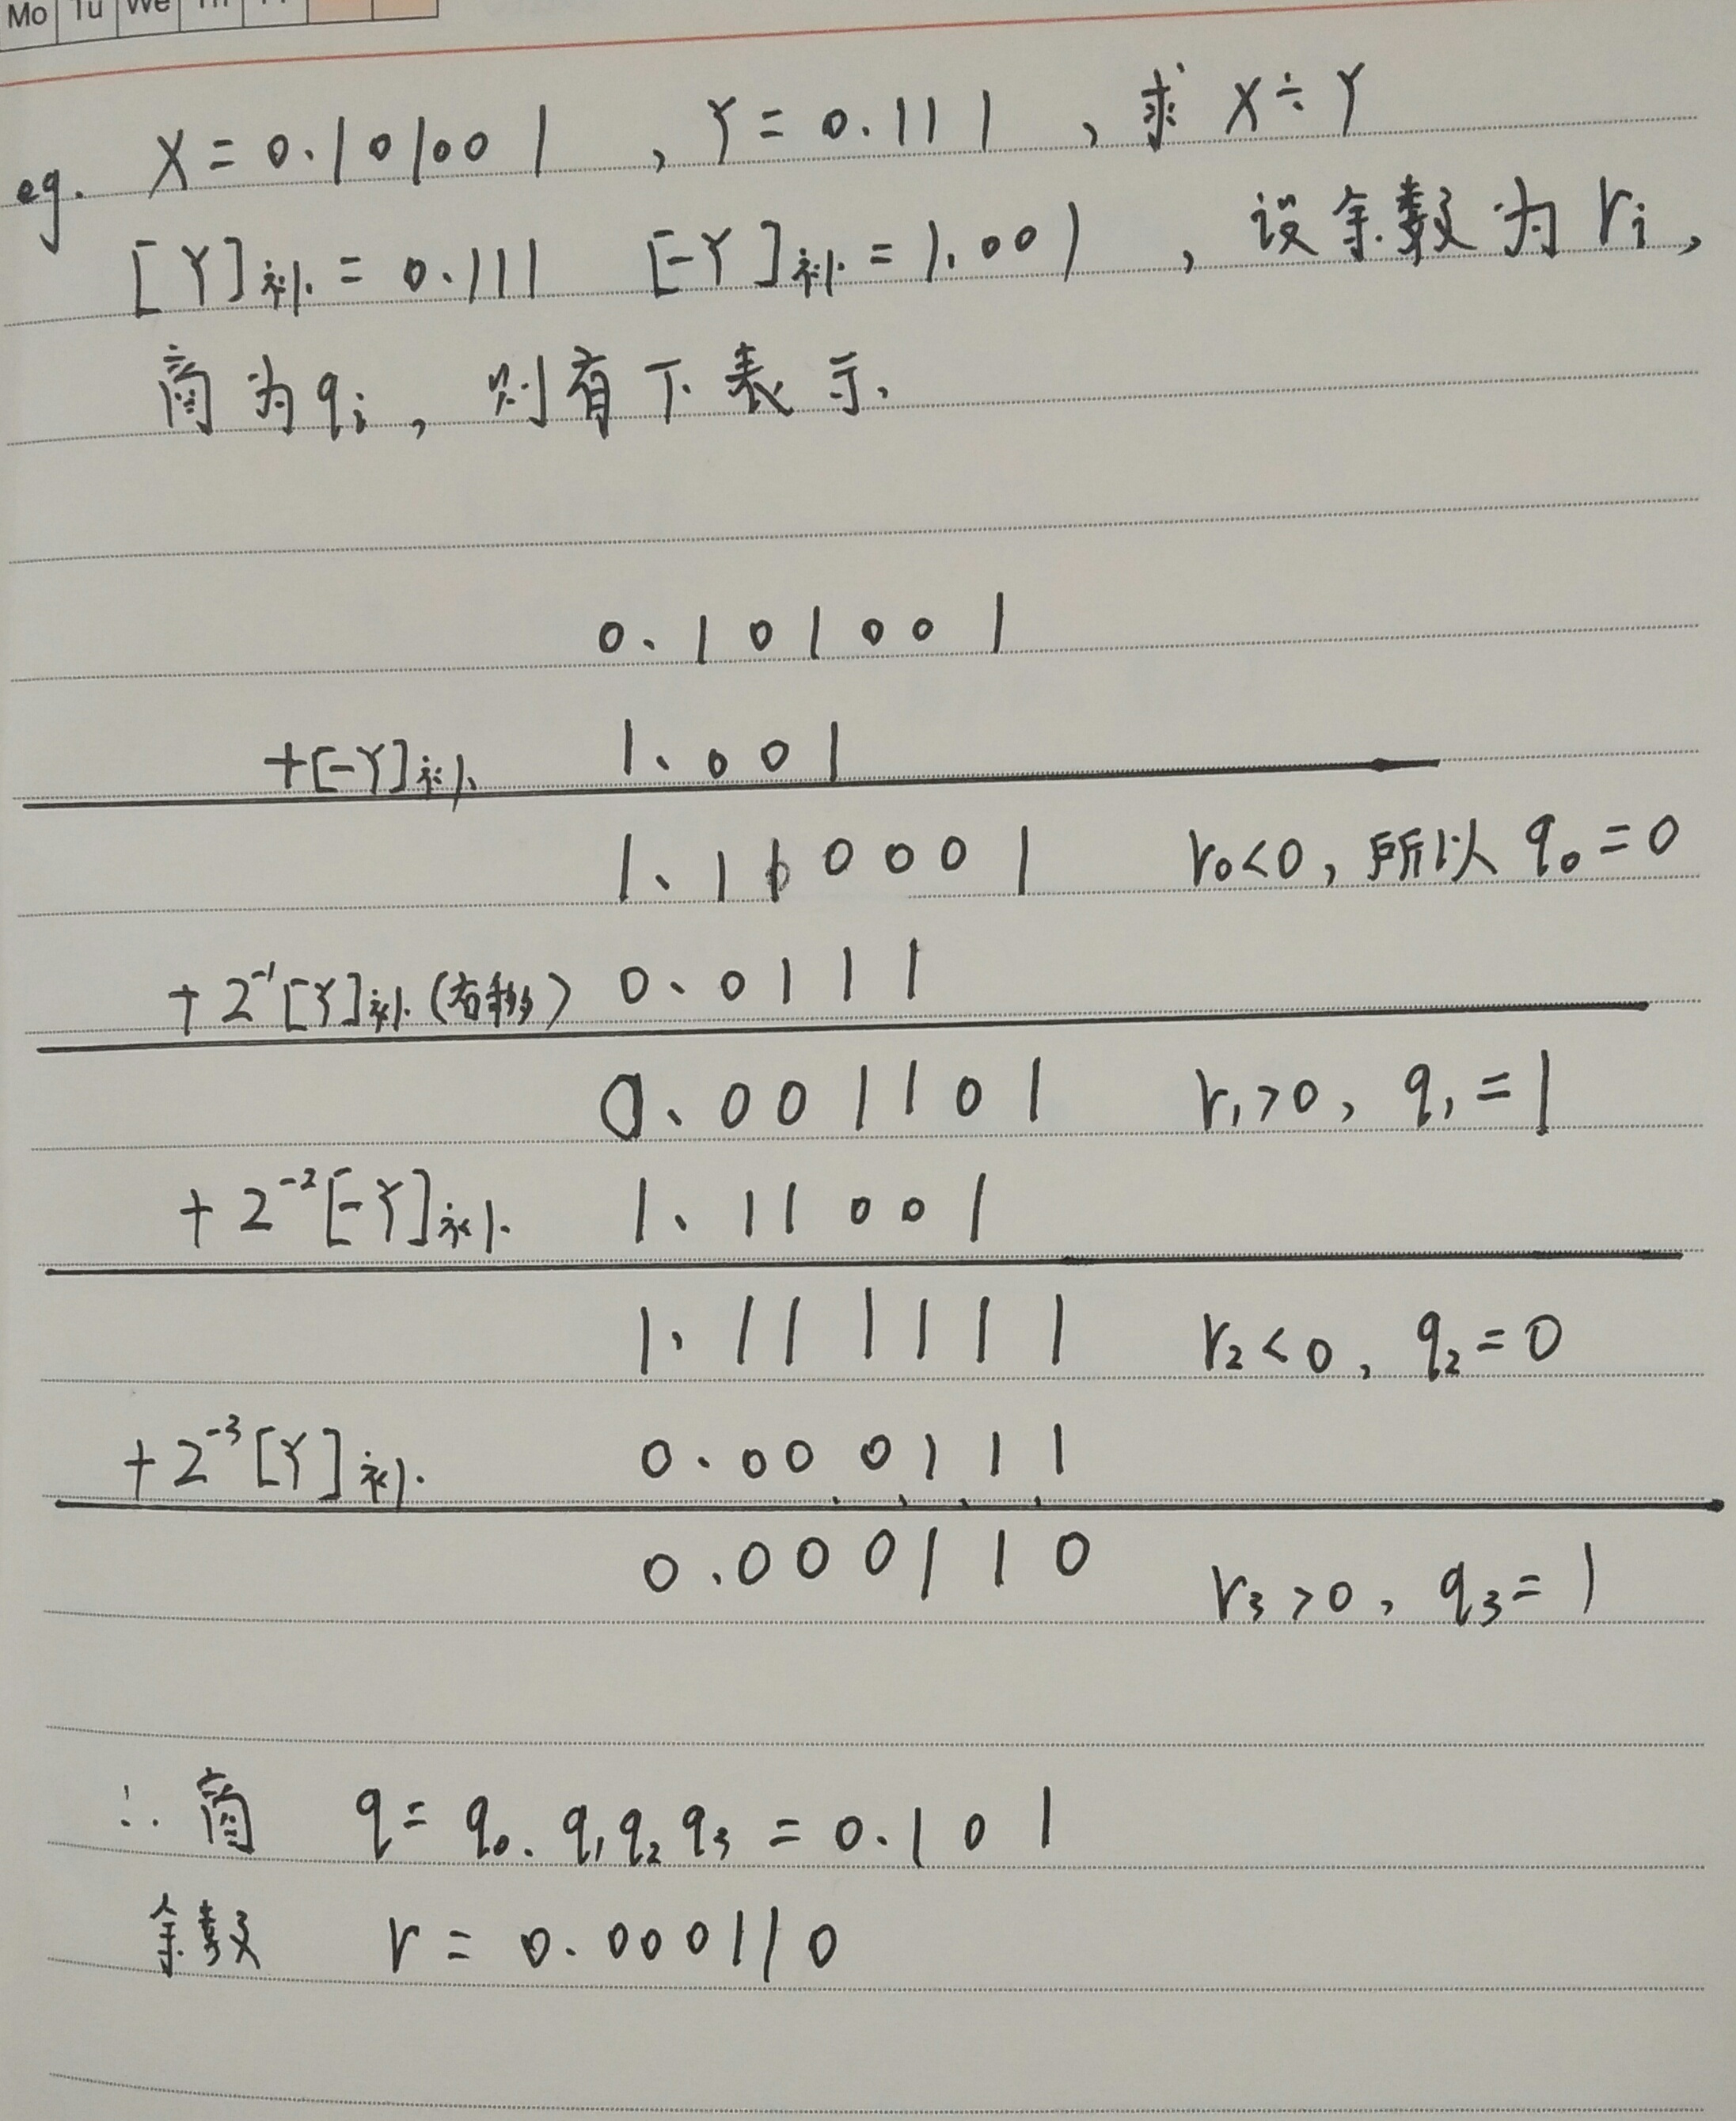 Mo Tu We Th
eg. X = 0.101001 , Y = 0.111 , 求 X ÷ Y
[Y]补 = 0.111 [-Y]补 = 1.001 , 设余数为 ri ,
商为 qi , 则有下表示.
0.101001
+[-Y]补 1.001
1.110001 r0<0, 所以 q0=0
+2^-1[Y]补 (右移) 0.0111
0.001101 r1>0, q1=1
+2^-2[-Y]补 1.11001
1.111111 r2<0, q2=0
+2^-3[Y]补 0.000111
0.000110 r3>0, q3=1
∴ 商 q = q0.q1q2q3 = 0.101
余数 r = 0.000110